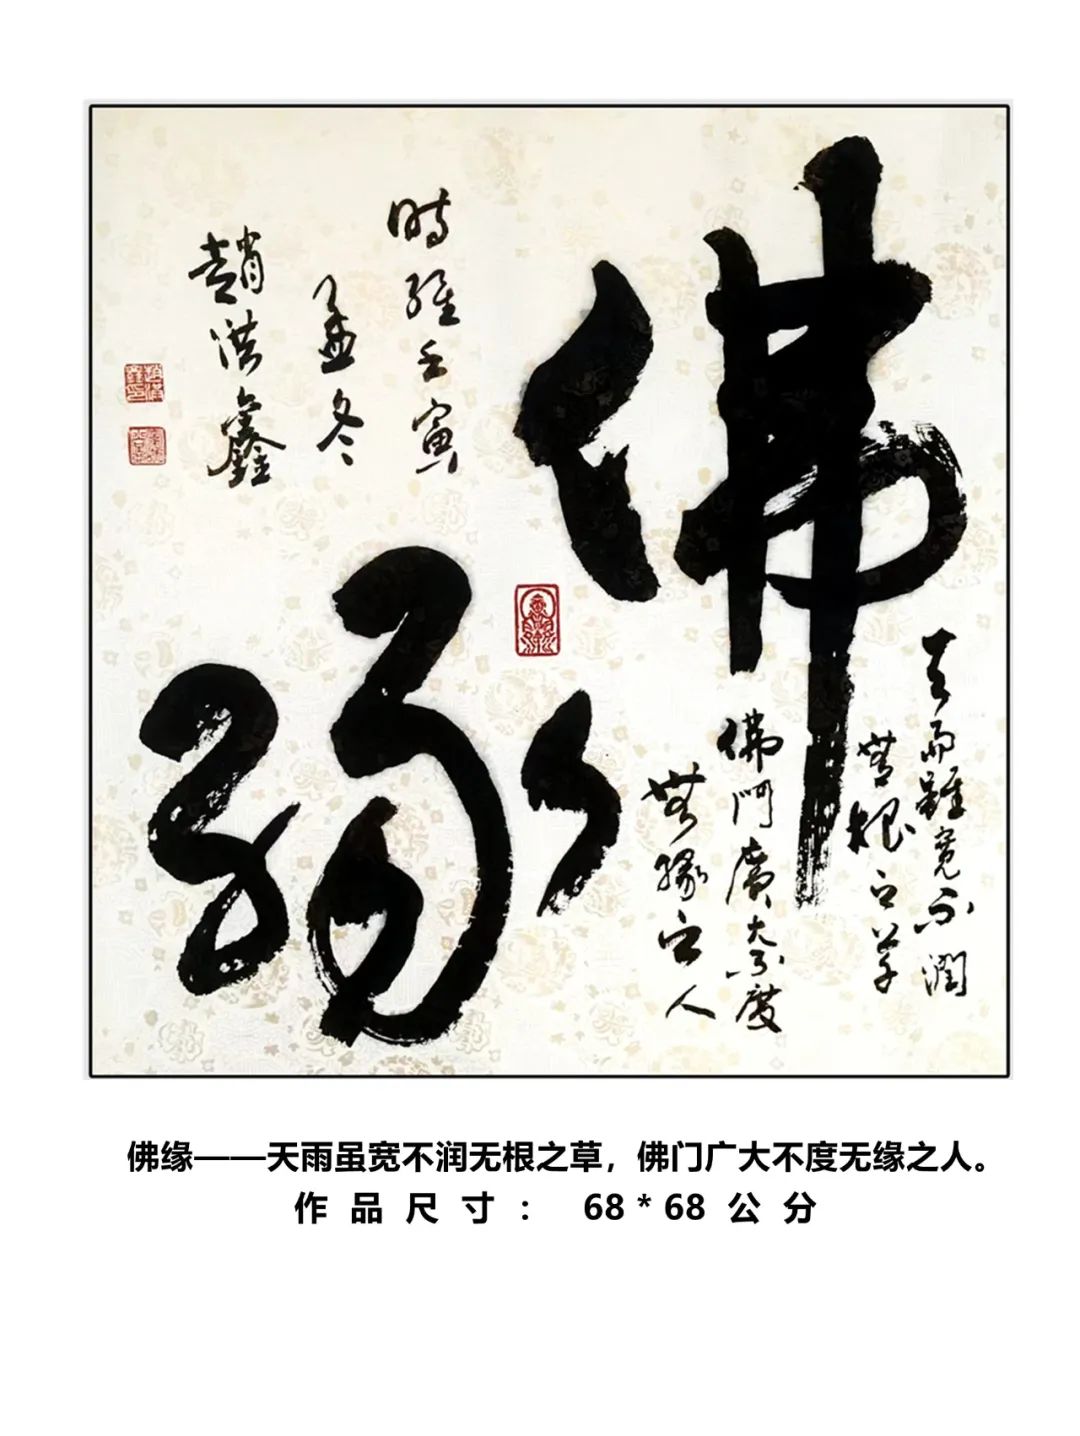 佛
緣
天雨雖寬不潤
無根之草
佛門廣大不度
無緣之人
時維壬寅
孟冬
趙洪鑫
佛缘——天雨虽宽不润无根之草，佛门广大不度无缘之人。
作品尺寸： 68*68公分